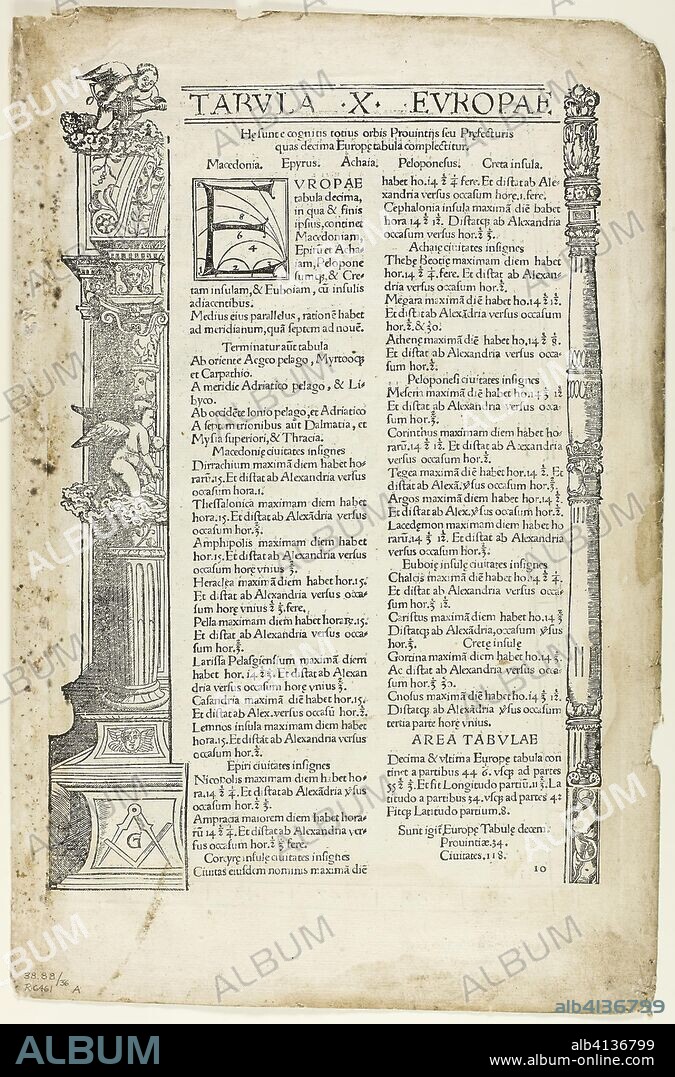 TABVLA ·X· EVROPAE
Hę sunt e cognitis totius orbis Prouintijs seu Pręfecturis
quas decima Europę tabula complectitur.
Macedonia. Epyrus. Achaia. Peloponesus. Creta insula.
EVROPAE
tabula decima,
in qua & finis
ipsius, continet
Macedoniam,
Epirū et Acha-
iam, Pelopone
sumq3, & Cre-
tam insulam, & Euboiam, cū insulis
adiacentibus.
Medius eius parallelus, rationē habet
ad meridianum, quā septem ad nouē.
Terminatur aūt tabula
Ab oriente Aegeo pelago, Myrtooq3
et Carpathio.
A meridie Adriatico pelago, & Li-
byco.
Ab occidēte Ionio pelago, et Adriatico
A septemtrionibus aūt Dalmatia, et
Mysia superiori, & Thracia.
Macedonię ciuitates insignes
Dirrachium maximā diem habet ho-
rarū.15. Et distat ab Alexandria versus
occasum hora.1.
Thessalonica maximam diem habet
hora.15. Et distat ab Alexādria versus
occasum hor.
Amphipolis maximam diem habet
hor.15. Et distat ab Alexandria versus
occasum horę vnius
Heraclea maximā diem habet hor.15.
Et distat ab Alexandria versus occa-
sum horę vnius fere.
Pella maximam diem habet horarū.15.
Et distat ab Alexandria versus occa-
sum hor.
Larissa Pelasgiensium maximā diem
habet hor. 14 Et distat ab Alexan
dria versus occasum horę vnius
Casandria maximā diem habet hor.15.
Et distat ab Alex. versus occasū hor.
Lemnos insula maximam diem habet
hora.15. Et distat ab Alexandria versus
occasum hor.
Epiri ciuitates insignes
Nicopolis maximam diem habet ho-
ra.14 Et distat ab Alexādria v̄sus
occasum hor.2
Ampracia maiorem diem habet hora-
rū 14 Et distat ab Alexandria ver-
sus occasum hor.2 fere.
Corcyrę insulę ciuitates insignes
Ciuitas eiusdem nominis maximā diē
habet ho.14 fere. Et distat ab Ale-
xandria versus occasum horę.1. fere.
Cephalonia insula maximā diē habet
hora 14 Distatq3 ab Alexandria
occasum versus hor.
Achaię ciuitates insignes
Thebę Beotię maximam diem habet
hor.14 fere. Et distat ab Alexan-
dria versus occasum hor.
Megara maximā diē habet ho.14
Et distat ab Alexādria versus occasum
hor. & 30.
Athenę maximā diē habet ho.14
Et distat ab Alexandria versus occa-
sum hor.
Peloponesi ciuitates insignes
Meseria maximā diē habet hor.14
Et distat ab Alexandria versus occa-
sum hor.
Corinthus maximam diem habet ho-
rarū.14 Et distat ab Alexandria
versus occasum hor.
Tegea maximā diē habet hor.14 Et
distat ab Alexā. v̄sus occasum hor.
Argos maximam diem habet hor.14
Et distat ab Alex. v̄sus occasum hor.
Lacedęmon maximam diem habet ho
rarū.14 Et distat ab Alexandria
versus occasum hor.
Euboię insulę ciuitates insignes
Chalcis maximā diē habet ho.14
Et distat ab Alexandria versus occa-
sum hor.
Caristus maximā diem habet hor.14
Distatq3 ab Alexādria, occasum v̄sus
hor. Cretę insulę
Gortina maximā diem habet ho.14
Ac distat ab Alexandria versus occa-
sum hor. 30.
Cnosus maximā diē habet ho.14
Distatq3 ab Alexādria v̄sus occasum
tertia parte horę vnius.
AREA TABVLAE
Decima & vltima Europę tabula con
tinet a partibus 44 6. vsq3 ad partes
55 Et fit Longitudo partiū.11 La
titudo a partibus 34. vsq3 ad partes 42
Fitq3 Latitudo partium.8.
Sunt igit̄ Europę Tabulę decem.
Prouintiæ.34.
Ciuitates.118.
10
8
6
4
2
G
38.88/36
R6461 A
ALBUM
alb4136799
ALBUM
alb4136799
www.album-online.com